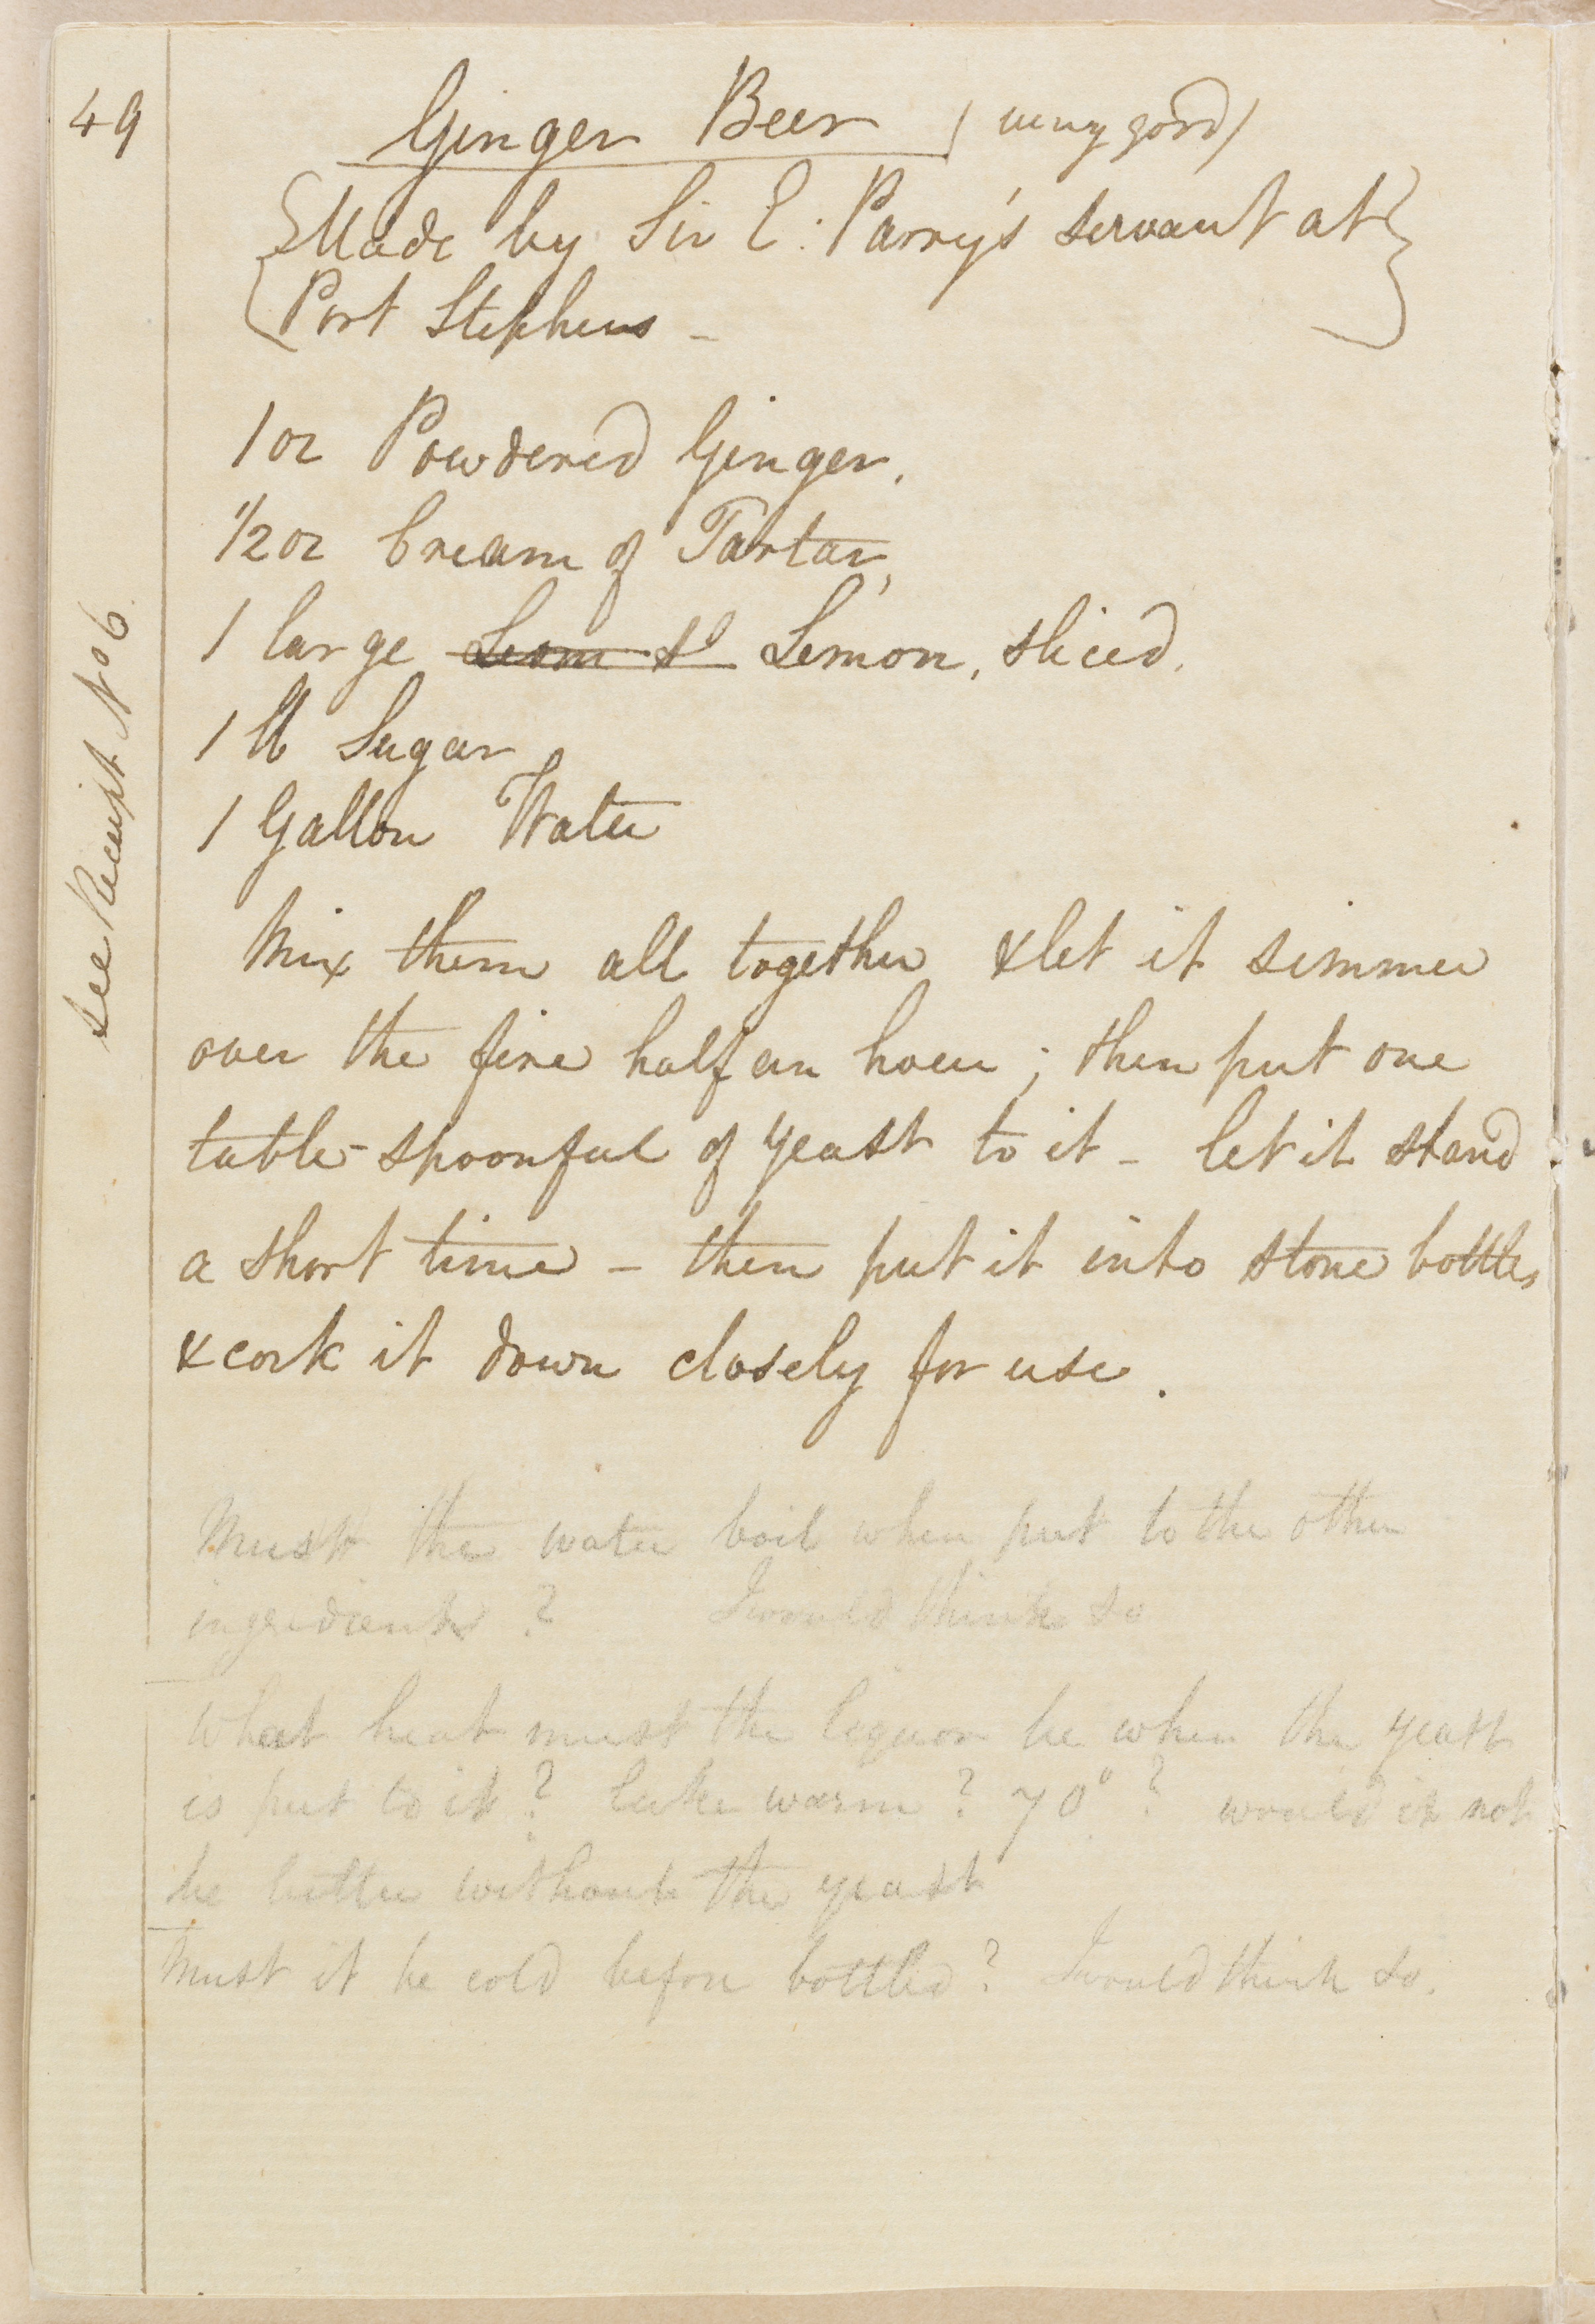 49
Ginger Beer (very good)
Made by Sir E: Parry's servant at
Port Stephens -
1 oz Powdered Ginger.
1/2 oz Cream of Tartar,
1 large Lemon, sliced.
1 lb Sugar
1 Gallon Water
See Receipt No 6.
Mix them all together & let it simmer
over the fire half an hour ; then put one
table-spoonful of yeast to it - let it stand
a short time - then put it into stone bottles
& cork it down closely for use.
Must the water boil when put to the other
ingredients ? I would think so
What heat must the liquor be when the yeast
is put to it ? luke warm ? 70° ? would it not
be better without the yeast
Must it be cold before bottled ? I would think so.